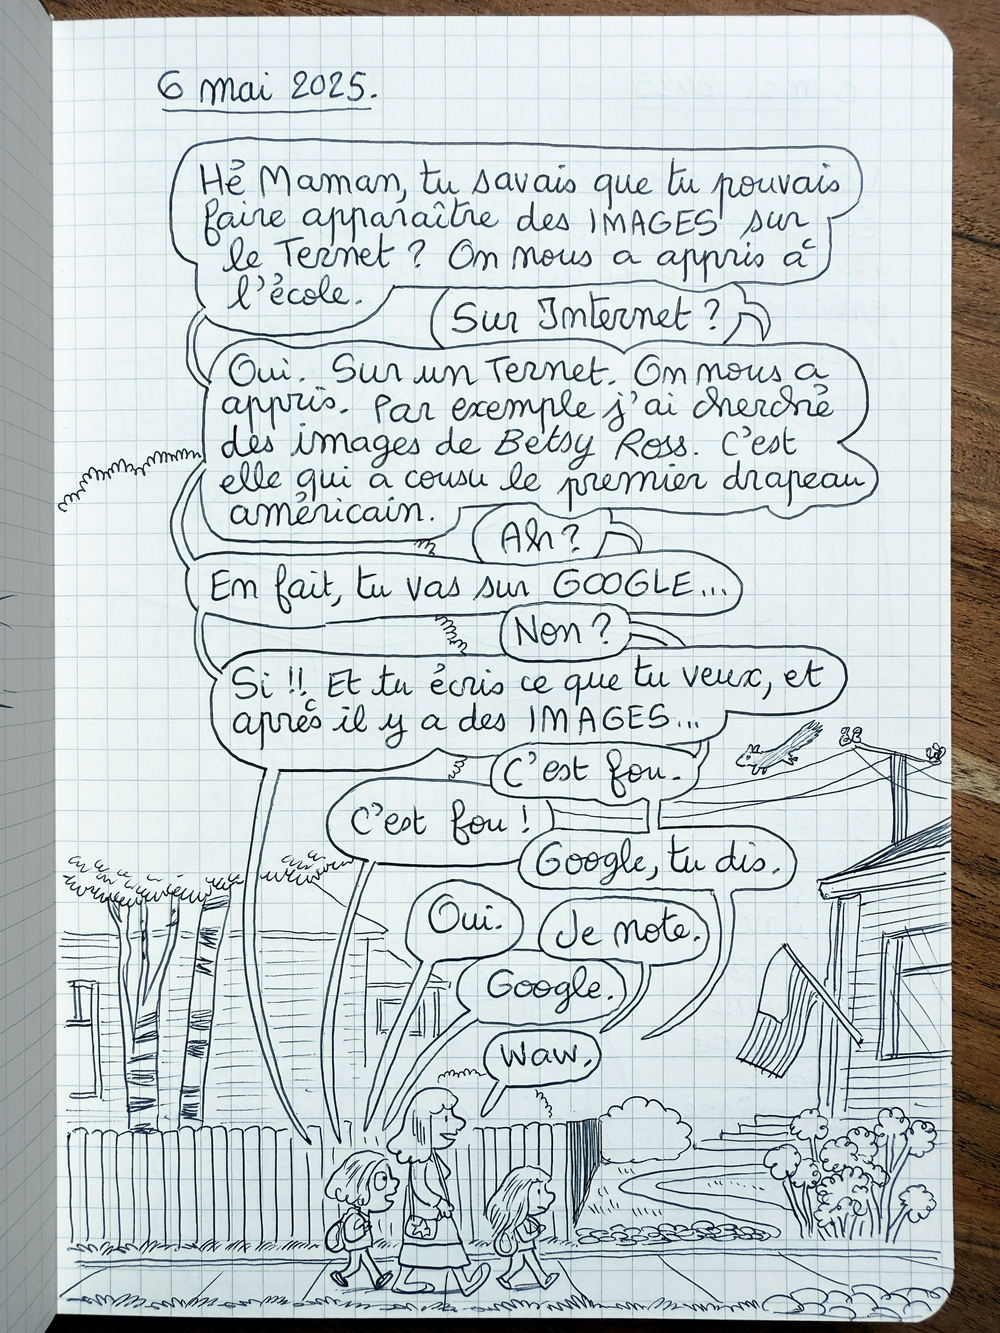 6 mai 2025.
Hé Maman, tu savais que tu pouvais
faire apparaître des IMAGES sur
le Ternet ? On nous a appris à
l'école.
Sur Internet ?
Oui. Sur un Ternet. On nous a
appris. Par exemple j'ai cherché
des images de Betsy Ross. C'est
elle qui a cousu le premier drapeau
américain.
Ah ?
En fait, tu vas sur GOOGLE...
Non ?
Si !! Et tu écris ce que tu veux, et
après il y a des IMAGES...
C'est fou.
C'est fou !
Google, tu dis.
Oui.
Je note.
Google.
Waw.